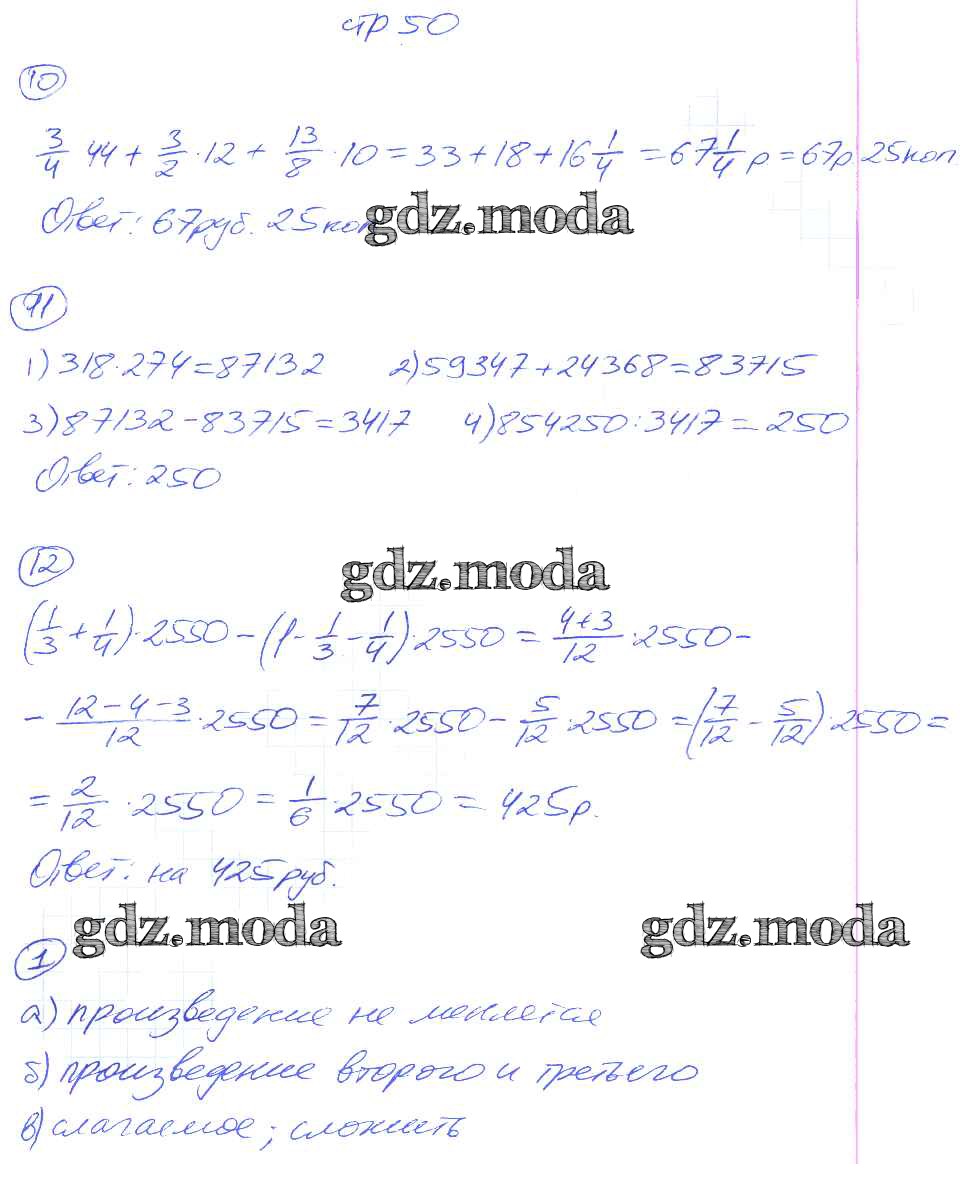 стр 50
10
3/4 44 + 3/2 · 12 + 13/8 · 10 = 33 + 18 + 16 1/4 = 67 1/4 р = 67р 25коп
Ответ: 67руб. 25коп
gdz.moda
11
1) 318·274=87132 2) 59347+24368=83715
3) 87132-83715=3417 4) 854250:3417=250
Ответ: 250
12
gdz.moda
(1/3 + 1/4)·2550 - (1 - 1/3 - 1/4)·2550 = 4+3/12 ·2550 -
- 12-4-3/12 ·2550 = 7/12 ·2550 - 5/12 ·2550 = (7/12 - 5/12)·2550 =
= 2/12 ·2550 = 1/6 ·2550 = 425р.
Ответ: на 425руб.
gdz.moda gdz.moda
1
а) произведение не меняется
б) произведение второго и третьего
в) слагаемое; сложить